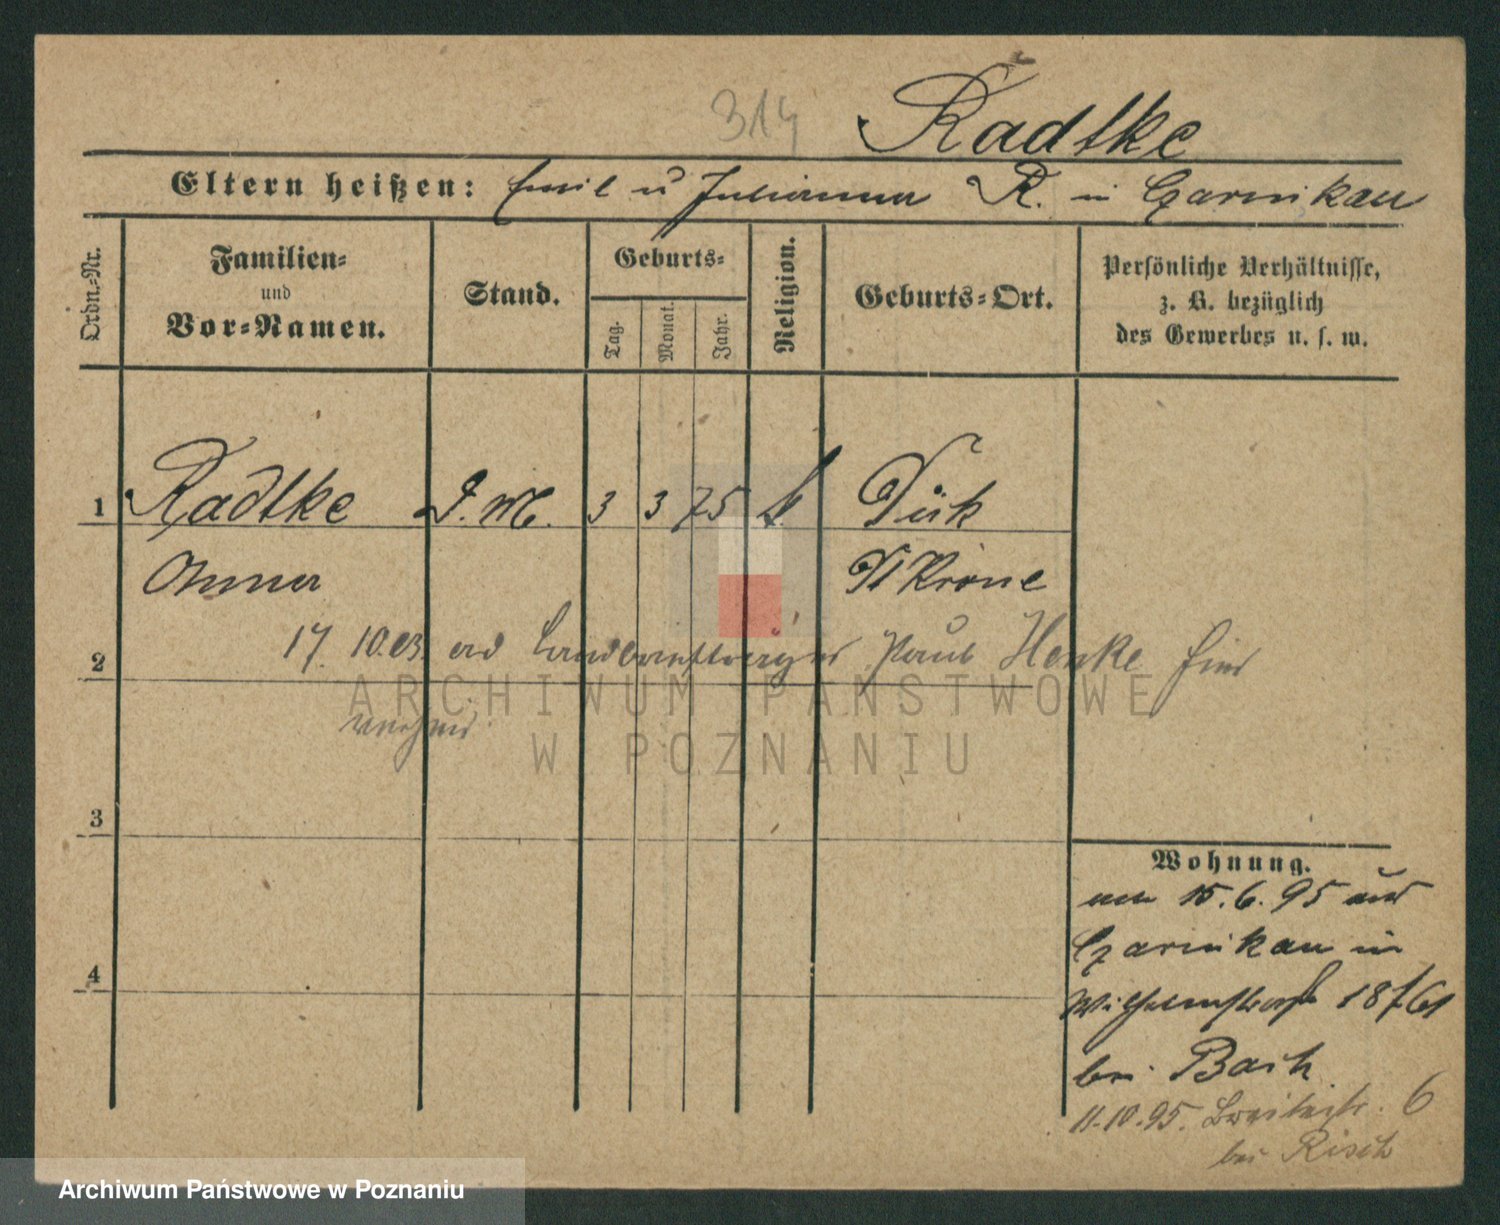 314
Radtke
Eltern heißen: Emil u Julianna R. in Czarnikau
Ordn.-Nr.
Familien-
und
Vor-Namen.
Stand.
Geburts-
Tag.
Monat.
Jahr.
Religion.
Geburts-Ort.
Persönliche Verhältnisse,
z. B. bezüglich
des Gewerbes u. s. w.
1 Radtke D. M. 3 3 75 k. 
Anna Dt Krone
2 17. 10.03. Paul Henke hier
3
4
Wohnung.
15.6.95 aus
Czarnikau in
Wilhelmstraße 18
bei
11.10.95. Breitestr. 6
bei Risch
ARCHIWUM PAŃSTWOWE
W POZNANIU
Archiwum Państwowe w Poznaniu